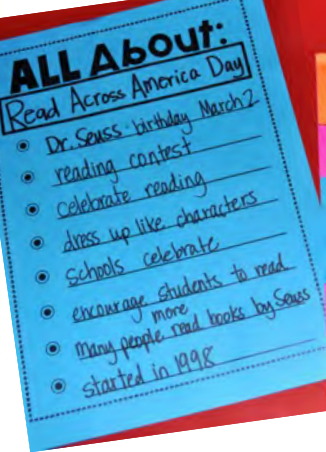 ALL About:
Read Across America Day
Dr. Seuss - birthday March 2
reading contest
celebrate reading
dress up like characters
schools celebrate
encourage students to read
more
many people read books by Seuss
started in 1998